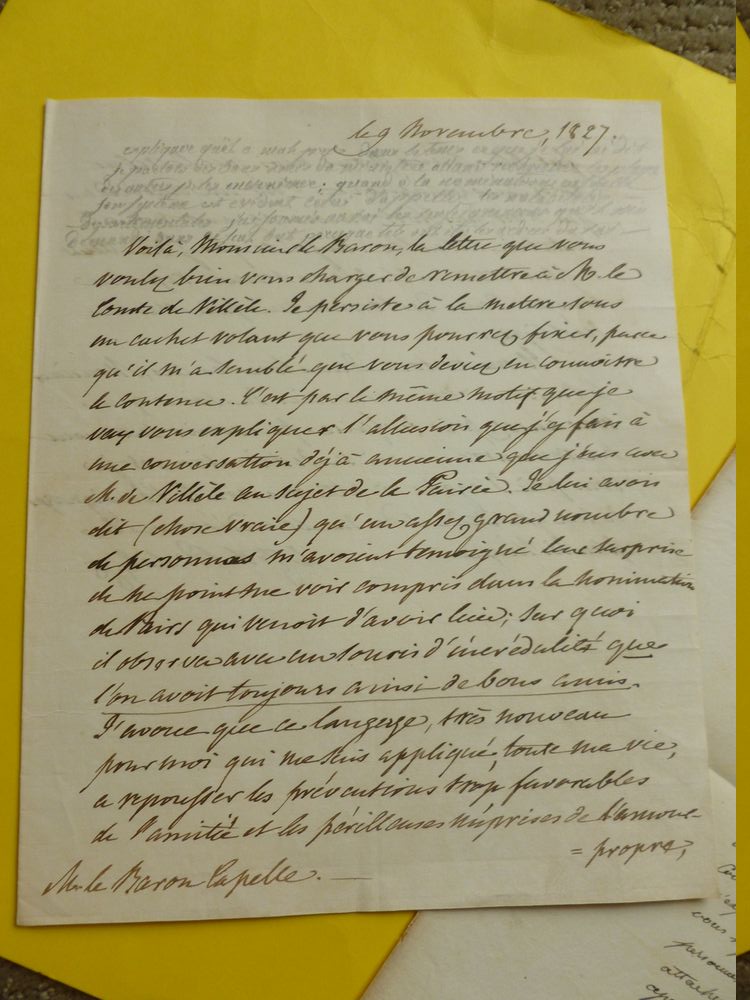 le 9 Novembre, 1827.
Voilà, Monsieur le Baron, la lettre que vous
voulez bien vous charger de remettre à M. le
Comte de Villèle. Je persiste à la mettre sous
un cachet volant que vous pourrez fixer, parce
qu'il m'a semblé que vous deviez en connoître
le contenu. C'est par le même motif que je
vay vous expliquer l'allusion que j'y fais à
une conversation déjà ancienne que j'eus avec
M. de Villèle au sujet de la Pairie. Je lui avois
dit (chose vraie) qu'un assez grand nombre
de personnes m'avoient temoigné leur surprise
de ne point me voir compris dans la nomination
de Pairs qui venoit d'avoir lieu; sur quoi
il observa avec un souris d'incrédulité que
l'on avoit toujours ainsi de bons amis.
J'avoue que ce langage, très nouveau
pour moi qui me suis appliqué, toute ma vie,
a repousser les préventions trop favorables
de l'amitié et les périlleuses méprises de l'amour-
= propre,
Mr. le Baron Capelle. —
vous
personne
attache